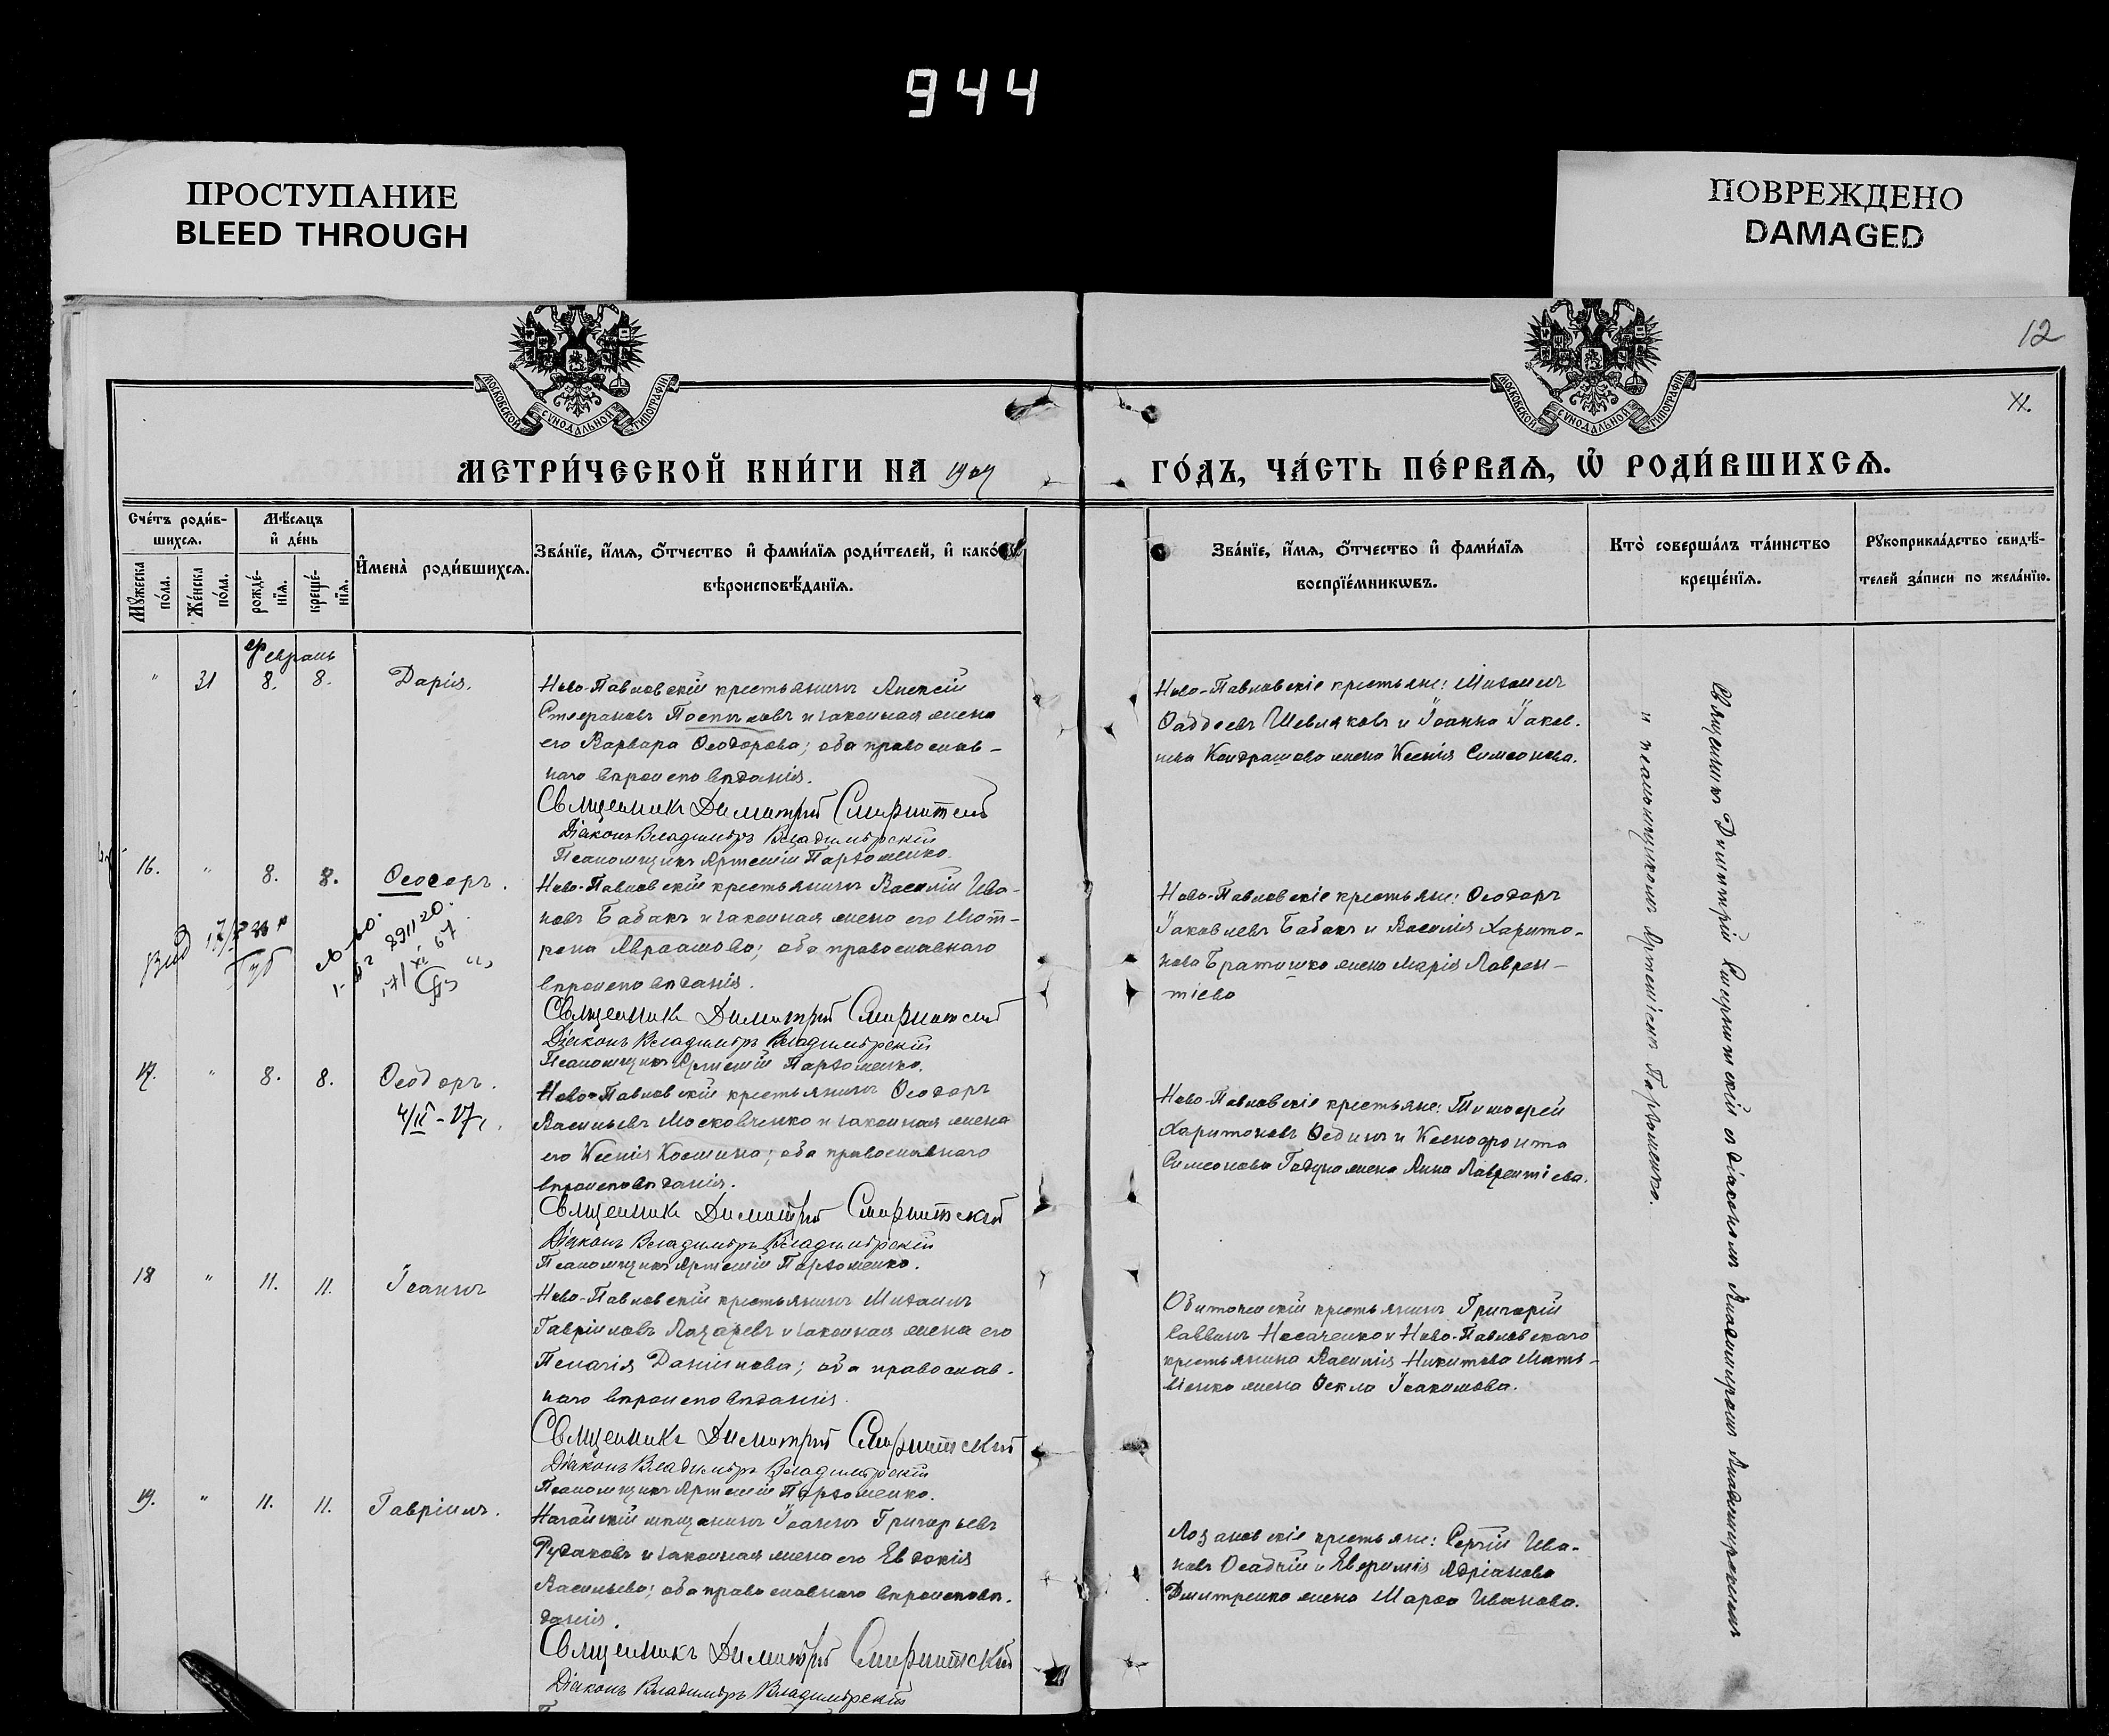 944
ПРОСТУПАНИЕ
BLEED THROUGH
ПОВРЕЖДЕНО
DAMAGED
12
XI.
МОСКОВСКОЙ СУНОДАЛЬНОЙ ТИПОГРАФІИ
МОСКОВСКОЙ СУНОДАЛЬНОЙ ТИПОГРАФІИ
МЕТРИ́ЧЕСКОЙ КНИ́ГИ НА 1907
ГО́ДЪ, ЧА́СТЬ ПЕ́РВАѦ, Ѡ҆ РОДИ́ВШИХСѦ.
Сче́тъ роди́в-
шихсѧ.
Мѣ́сѧцъ
и҆ де́нь
Мꙋ́жеска
по́ла.
Же́нска
по́ла.
рожде́-
нїѧ.
креще́-
нїѧ.
И҆мена̀ роди́вшихсѧ.
Зва́нїе, и҆́мѧ, ѻ҆́тчество и҆ фами́лїѧ роди́телей, и҆ како́гѡ
вѣроисповѣ́данїѧ.
Зва́нїе, и҆́мѧ, ѻ҆́тчество и҆ фами́лїѧ
воспрїе́мникѡвъ.
Кто̀ соверша́лъ та́инство
креще́нїѧ.
Рꙋкоприкла́дство свидѣ́-
телей за́писи по жела́нїю.
Февраль
" 31 8. 8. Дарія.
Ново-Павловскій крестьянинъ Алексій
Стефановъ Постыловъ и законная жена
его Варвара Ѳеодорова; оба православ-
наго вѣроисповѣданія.
Священникъ Димитрій Смирнитскій
Діаконъ Владиміръ Владимірскій
Псаломщикъ Артемій Пархоменко.
Ново-Павловскіе крестьяне: Михаилъ
Ѳаддеевъ Шевляковъ и Іоанна Іаков-
лева Кондрашова жена Ксенія Симеонова.
16. " 8. 8. Ѳеодоръ.
Ново-Павловскій крестьянинъ Василій Ива-
новъ Бабакъ и законная жена его Мот-
рона Авраамова; оба православнаго
вѣроисповѣданія.
Священникъ Димитрій Смирнитскій
Діаконъ Владиміръ Владимірскій
Псаломщикъ Артемій Пархоменко.
Ново-Павловскіе крестьяне: Ѳеодоръ
Іаковлевъ Бабакъ и Василія Харито-
нова Братишко жена Марія Лаврен-
тіева
17. " 8. 8. Ѳеодоръ.
4/II-27г.
Ново-Павловскій крестьянинъ Ѳеодоръ
Васильевъ Московченко и законная жена
его Ксенія Космина; оба православнаго
вѣроисповѣданія.
Священникъ Димитрій Смирнитскій
Діаконъ Владиміръ Владимірскій
Псаломщикъ Артемій Пархоменко.
Ново-Павловскіе крестьяне: Тимоѳей
Харитоновъ Ѳединъ и Ксенофонта
Симеонова Гадуна жена Анна Лаврентіева.
18 " 11. 11. Іоаннъ
Ново-Павловскій крестьянинъ Михаилъ
Гавріиловъ Лазаревъ и законная жена его
Пелагія Даніилова; оба православ-
наго вѣроисповѣданія.
Священникъ Димитрій Смирнитскій
Діаконъ Владиміръ Владимірскій
Псаломщикъ Артемій Пархоменко.
Обиточенскій крестьянинъ Григорій
Саввинъ Носаченко и Ново-Павловскаго
крестьянина Василія Никитова Мать-
віенко жена Ѳекла Іоакимова.
19. " 11. 11. Гавріилъ.
Ногайскій мѣщанинъ Іоаннъ Григорьевъ
Рудаковъ и законная жена его Евдокія
Васильева; оба православнаго вѣроисповѣ-
данія.
Священникъ Димитрій Смирнитскій
Діаконъ Владиміръ Владимірскій
Лозановскіе крестьяне: Сергій Ива-
новъ Осадчій и Евфимія Адріанова
Дмитренко жена Марѳа Иванова.
Священникъ Димитрій Смирнитскій съ діакономъ Владиміромъ Владимірскимъ
и псаломщикомъ Артеміемъ Пархоменко.